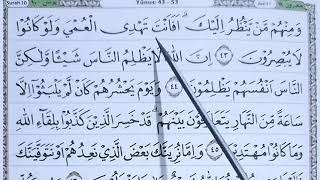 Surah 10 Yûnus: 43 - 53
وَمِنْهُمْ مَنْ يَنْظُرُ اِلَيْكَ اَفَاَنْتَ تَهْدِى الْعُمْىَ وَلَوْ كَانُوا
لَا يُبْصِرُونَ ٤٣ اِنَّ اللّٰهَ لَا يَظْلِمُ النَّاسَ شَيْـًٔا وَلٰكِنَّ
النَّاسَ اَنْفُسَهُمْ يَظْلِمُونَ ٤٤ وَيَوْمَ يَحْشُرُهُمْ كَاَنْ لَمْ
سَاعَةً مِنَ النَّهَارِ يَتَعَارَفُونَ بَيْنَهُمْ قَدْ خَسِرَ الَّذِينَ كَذَّبُوا بِلِقَاءِ اللّٰهِ
وَمَا كَانُوا مُهْتَدِينَ ٤٥ وَاِمَّا نُرِيَنَّكَ بَعْضَ الَّذِى نَعِدُهُمْ اَوْ نَتَوَفَّيَنَّكَ